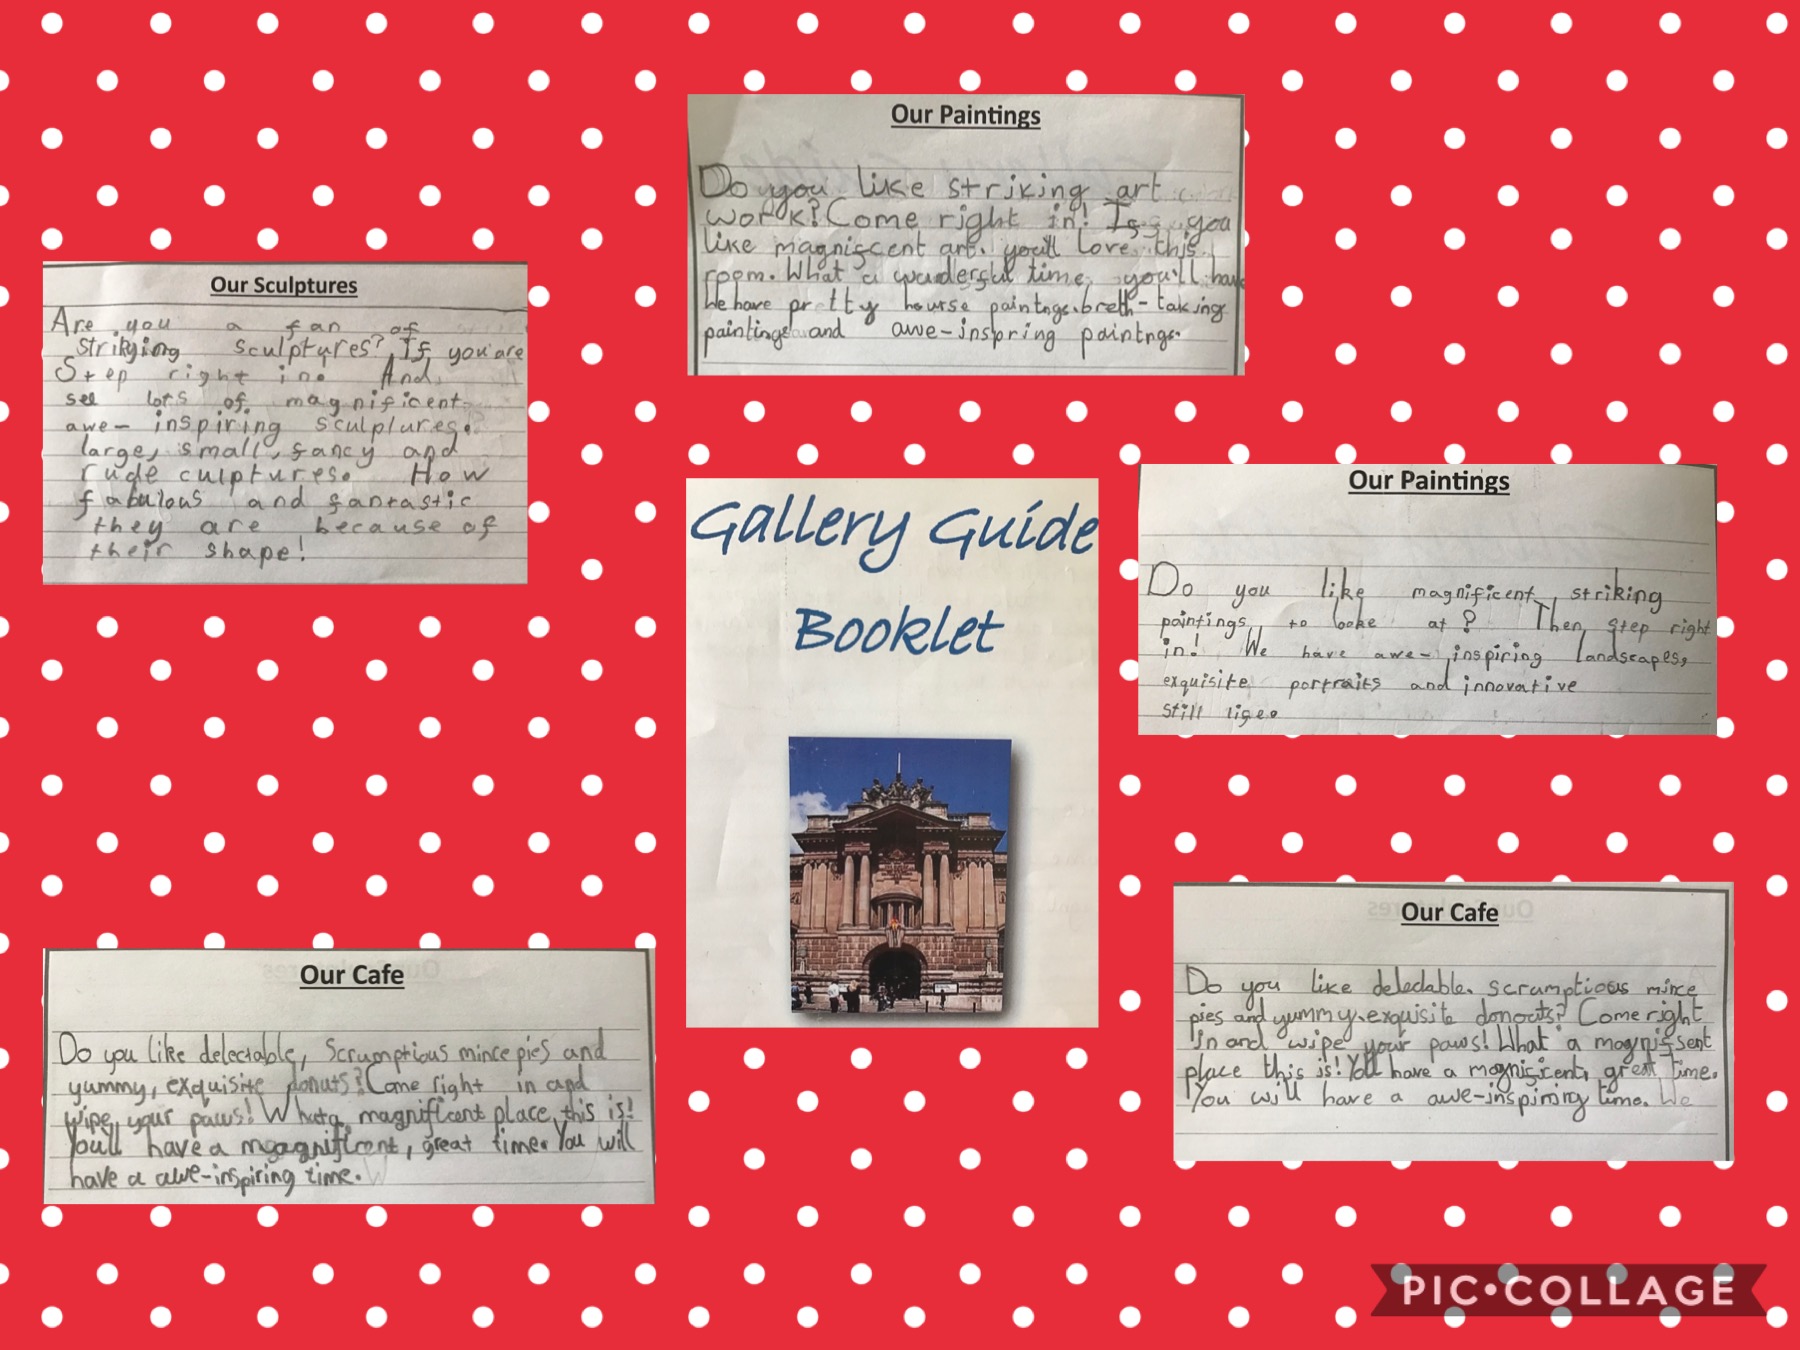 Our Paintings
Do you like striking art
work? Come right in! If you
like magniscent art. you'll love this
room. What a wonderful time you'll have
We have pretty hourse paintngs. breth-taking
paintings and awe-inspring paintngs.
Our Sculptures
Are you a fan of
striking sculptures? If you are
Step right in. And
see lots of magnificent
awe-inspiring sculptures.
large, small, fancy and
rude culptures. How
fabulous and fantastic
they are because of
their shape!
Gallery Guide
Booklet
Our Paintings
Do you like magnificent, striking
paintings to looke at? Then step right
in! We have awe-inspiring landscapes,
exquisite portraits and innovative
still life.
Our Cafe
Do you like delectable, scrumptious mince pies and
yummy, exquisite donuts? Come right in and
wipe your paws! What a magnificent place this is!
You'll have a magnificent, great time. You will
have a awe-inspiring time.
Our Cafe
Do you like deledable. scrumptious mince
pies and yummy. exquisite donouts? Come right
in and wipe your paws! What a magnifisent
place this is! You'll have a magnificent, great time.
You will have a awe-inspiring time. We
PIC•COLLAGE